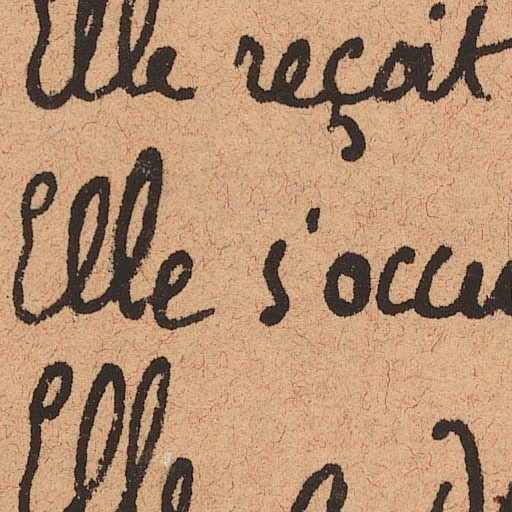 Elle reçoit
Elle s'occu
Elle